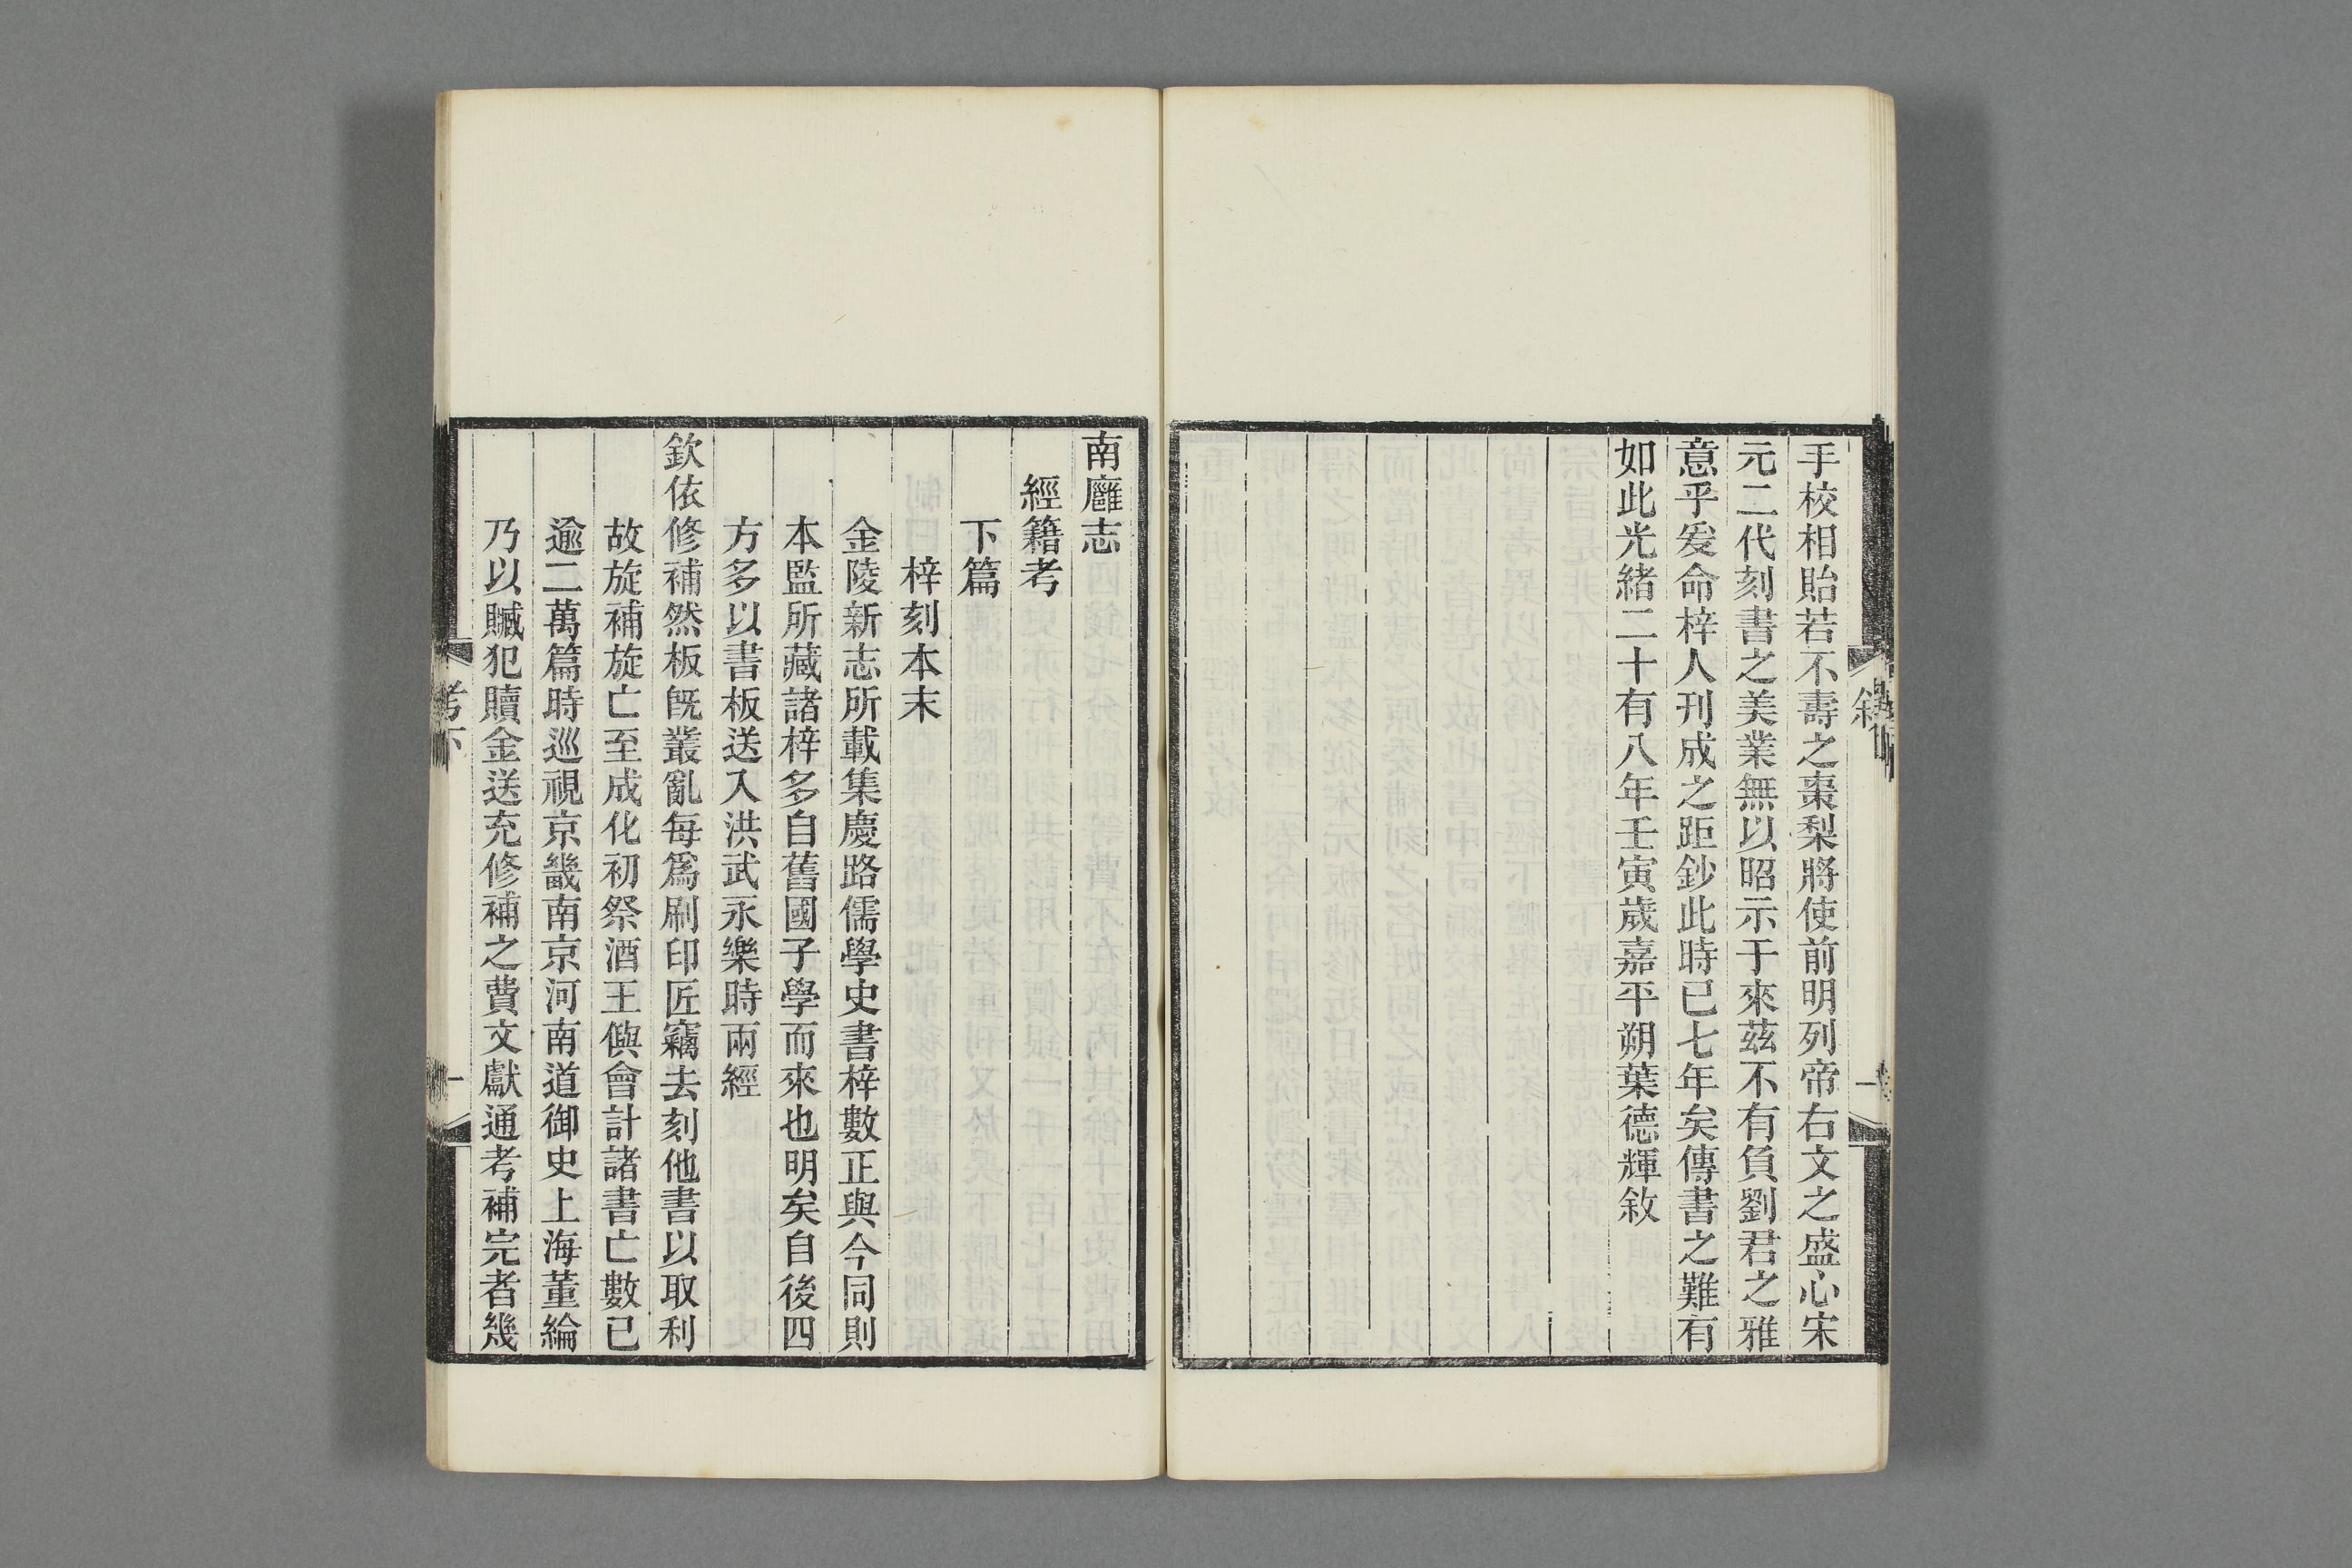 手校相貽若不壽之棗梨將使前明列帝右文之盛心宋
元二代刻書之美業無以昭示于來茲不有負劉君之雅
意乎爰命梓人刊成之距鈔此時已七年矣傳書之難有
如此光緒二十有八年壬寅歲嘉平朔葉德輝敘
南廱志
經籍考
下篇
梓刻本末
金陵新志所載集慶路儒學史書梓數正與今同則
本監所藏諸梓多自舊國子學而來也明矣自後四
方多以書板送入洪武永樂時兩經
欽依修補然板旣叢亂每爲刷印匠竊去刻他書以取利
故旋補旋亡至成化初祭酒王㒜會計諸書亡數已
逾二萬篇時巡視京畿南京河南道御史上海董綸
乃以贓犯贖金送充修補之費文獻通考補完者幾
考下
一